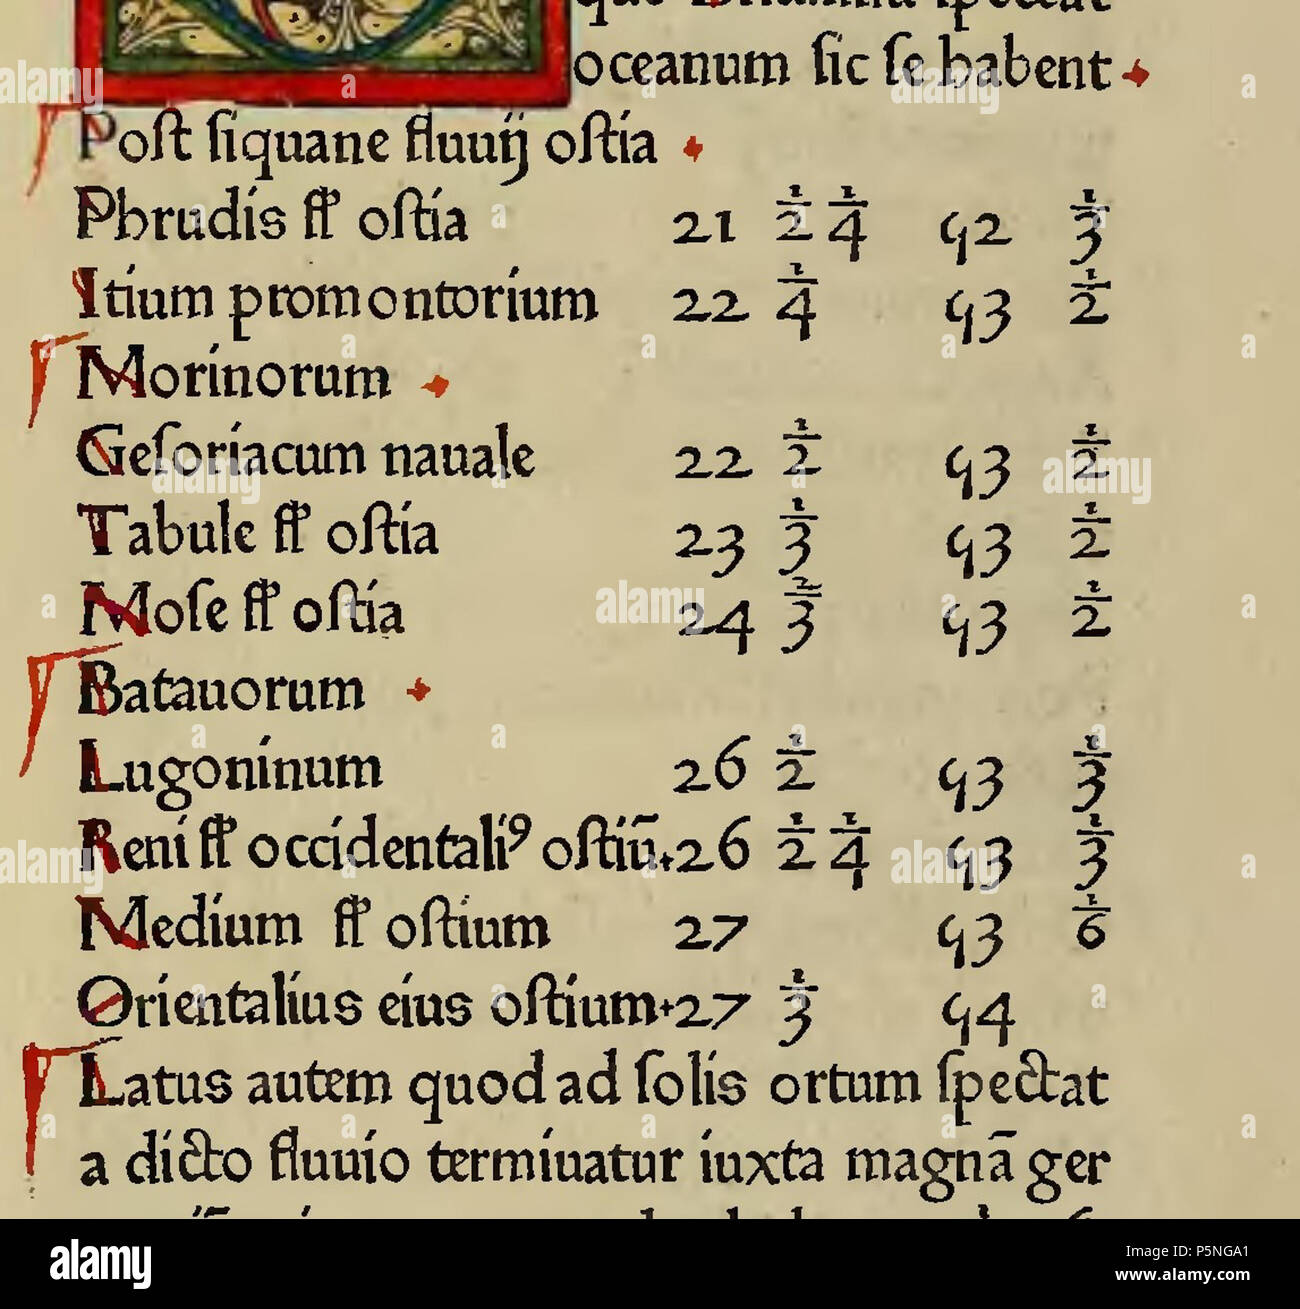 oceanum ſic ſe habent
Poſt ſiquane fluuij oſtia
Phrudis fľ oſtia 21 1/2 1/4 52 1/3
Itium promontorium 22 1/4 53 1/2
Morinorum
Geſoriacum nauale 22 1/2 53 1/2
Tabule fľ oſtia 23 1/3 53 1/2
Moſe fľ oſtia 24 2/3 53 1/2
Batauorum
Lugoninum 26 1/2 53 1/3
Reni fľ occidentaliꝰ oſtiū 26 1/2 1/4 53 1/3
Medium fľ oſtium 27 53 1/6
Orientalius eius oſtium 27 1/3 54
Latus autem quod ad ſolis ortum ſpectat
a dicto fluuio termiuatur iuxta magnā ger
alamy
Image ID: P5NGA1
www.alamy.com